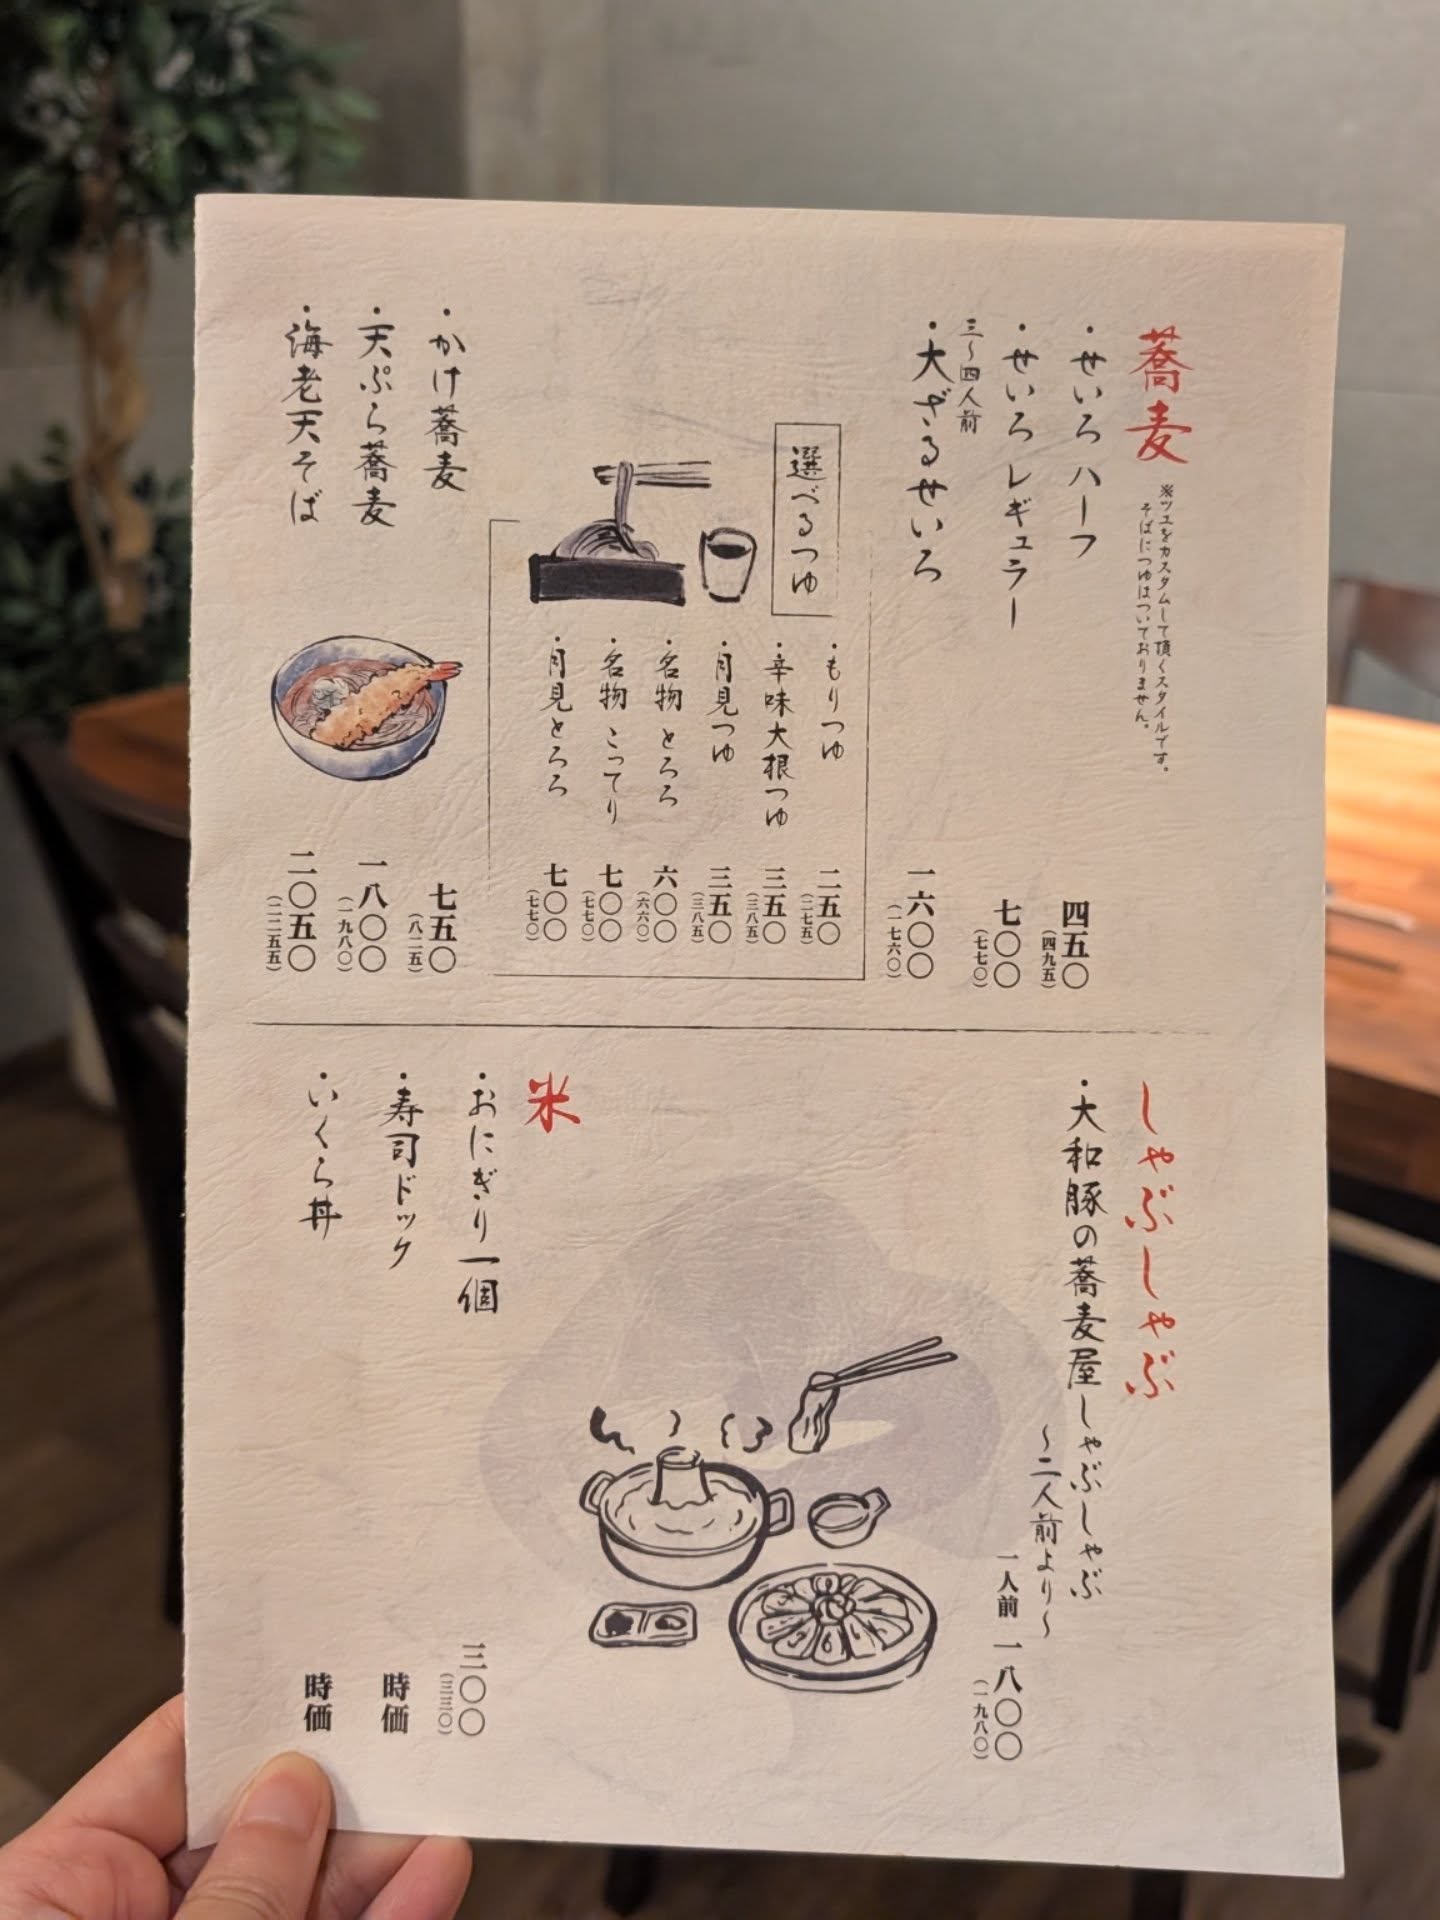 蕎麦
※ツユをカスタムして頂くスタイルです。
そばにつゆはついておりません。
・せいろ ハーフ 四五〇
（四九五）
・せいろ レギュラー 七〇〇
（七七〇）
三〜四人前
・大ざるせいろ 一六〇〇
（一七六〇）
選べるつゆ
・もりつゆ 二五〇
（二七五）
・辛味大根つゆ 三五〇
（三八五）
・月見つゆ 三五〇
（三八五）
・名物 とろろ 六〇〇
（六六〇）
・名物 こってり 七〇〇
（七七〇）
・月見とろろ 七〇〇
（七七〇）
・かけ蕎麦 七五〇
（八二五）
・天ぷら蕎麦 一八〇〇
（一九八〇）
・海老天そば 二〇五〇
（二二五五）
しゃぶしゃぶ
・大和豚の蕎麦屋しゃぶしゃぶ
〜二人前より〜
一人前 一八〇〇
（一九八〇）
米
・おにぎり一個 三〇〇
（三三〇）
・寿司ドック 時価
・いくら丼 時価